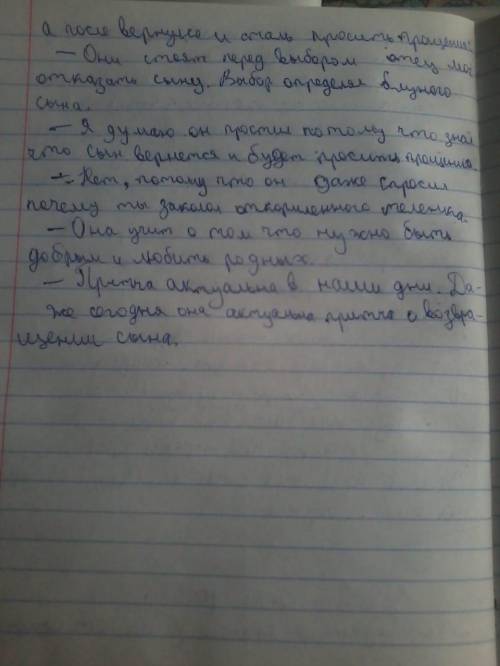 а после вернулся и сталь просить прощения.
— Они стоят перед выбором отец мог
отказать сыну. Выбор определял блудного
сына.
— Я думаю он простил потому что знал
что сын вернется и будет просить прощения.
— Нет, потому что он даже спросил
почему ты заколол откормленного теленка.
— Она учит о том что нужно быть
добрым и любить родных.
— Притча актуальна в наши дни. Да-
же сегодня она актуальна притча о возвра-
щении сына.